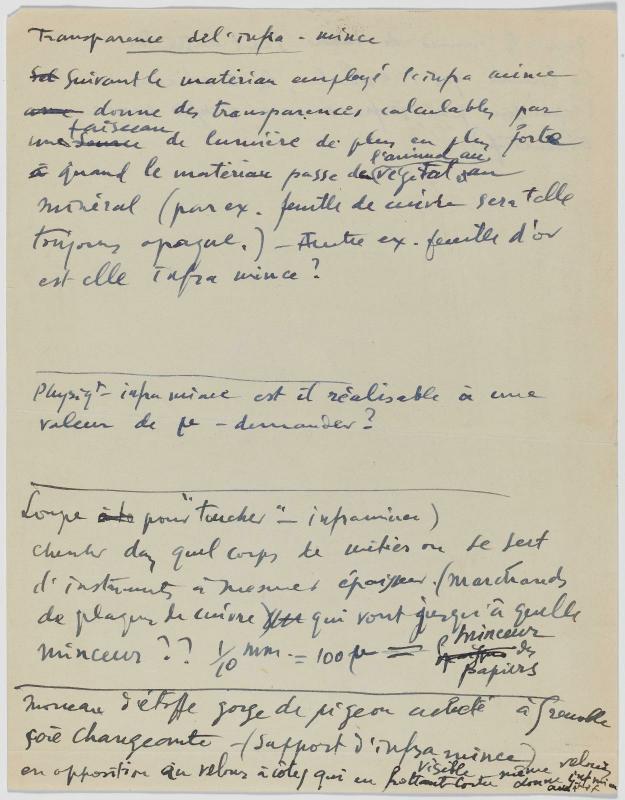 Transparence de l'infra-mince
Suivant le matériau employé l'infra mince
donne des transparences calculables par
une faisceau de lumière de plus en plus forte
à quand le matériau passe de l'animal au végétal au
minéral (par ex. feuille de cuivre sera telle
toujours opaque.) — Autre ex. feuille d'or
est elle infra mince ?
Physiqt - infra mince est il réalisable à une
valeur de μ — demander ?
Loupe pour "toucher" — inframinces)
chercher dans quel corps de métier on se sert
d'instruments à mesurer épaisseur. (Marchands
de plaques de cuivre) qui vont jusqu'à quelle
minceur ?? 1/10 mm. = 100 μ = minceur des
papiers
morceau d'étoffe gorge de pigeon acheté à Grenoble
soie changeante — (Support d'infra mince)
en opposition au velours à côtes qui en frottant contre